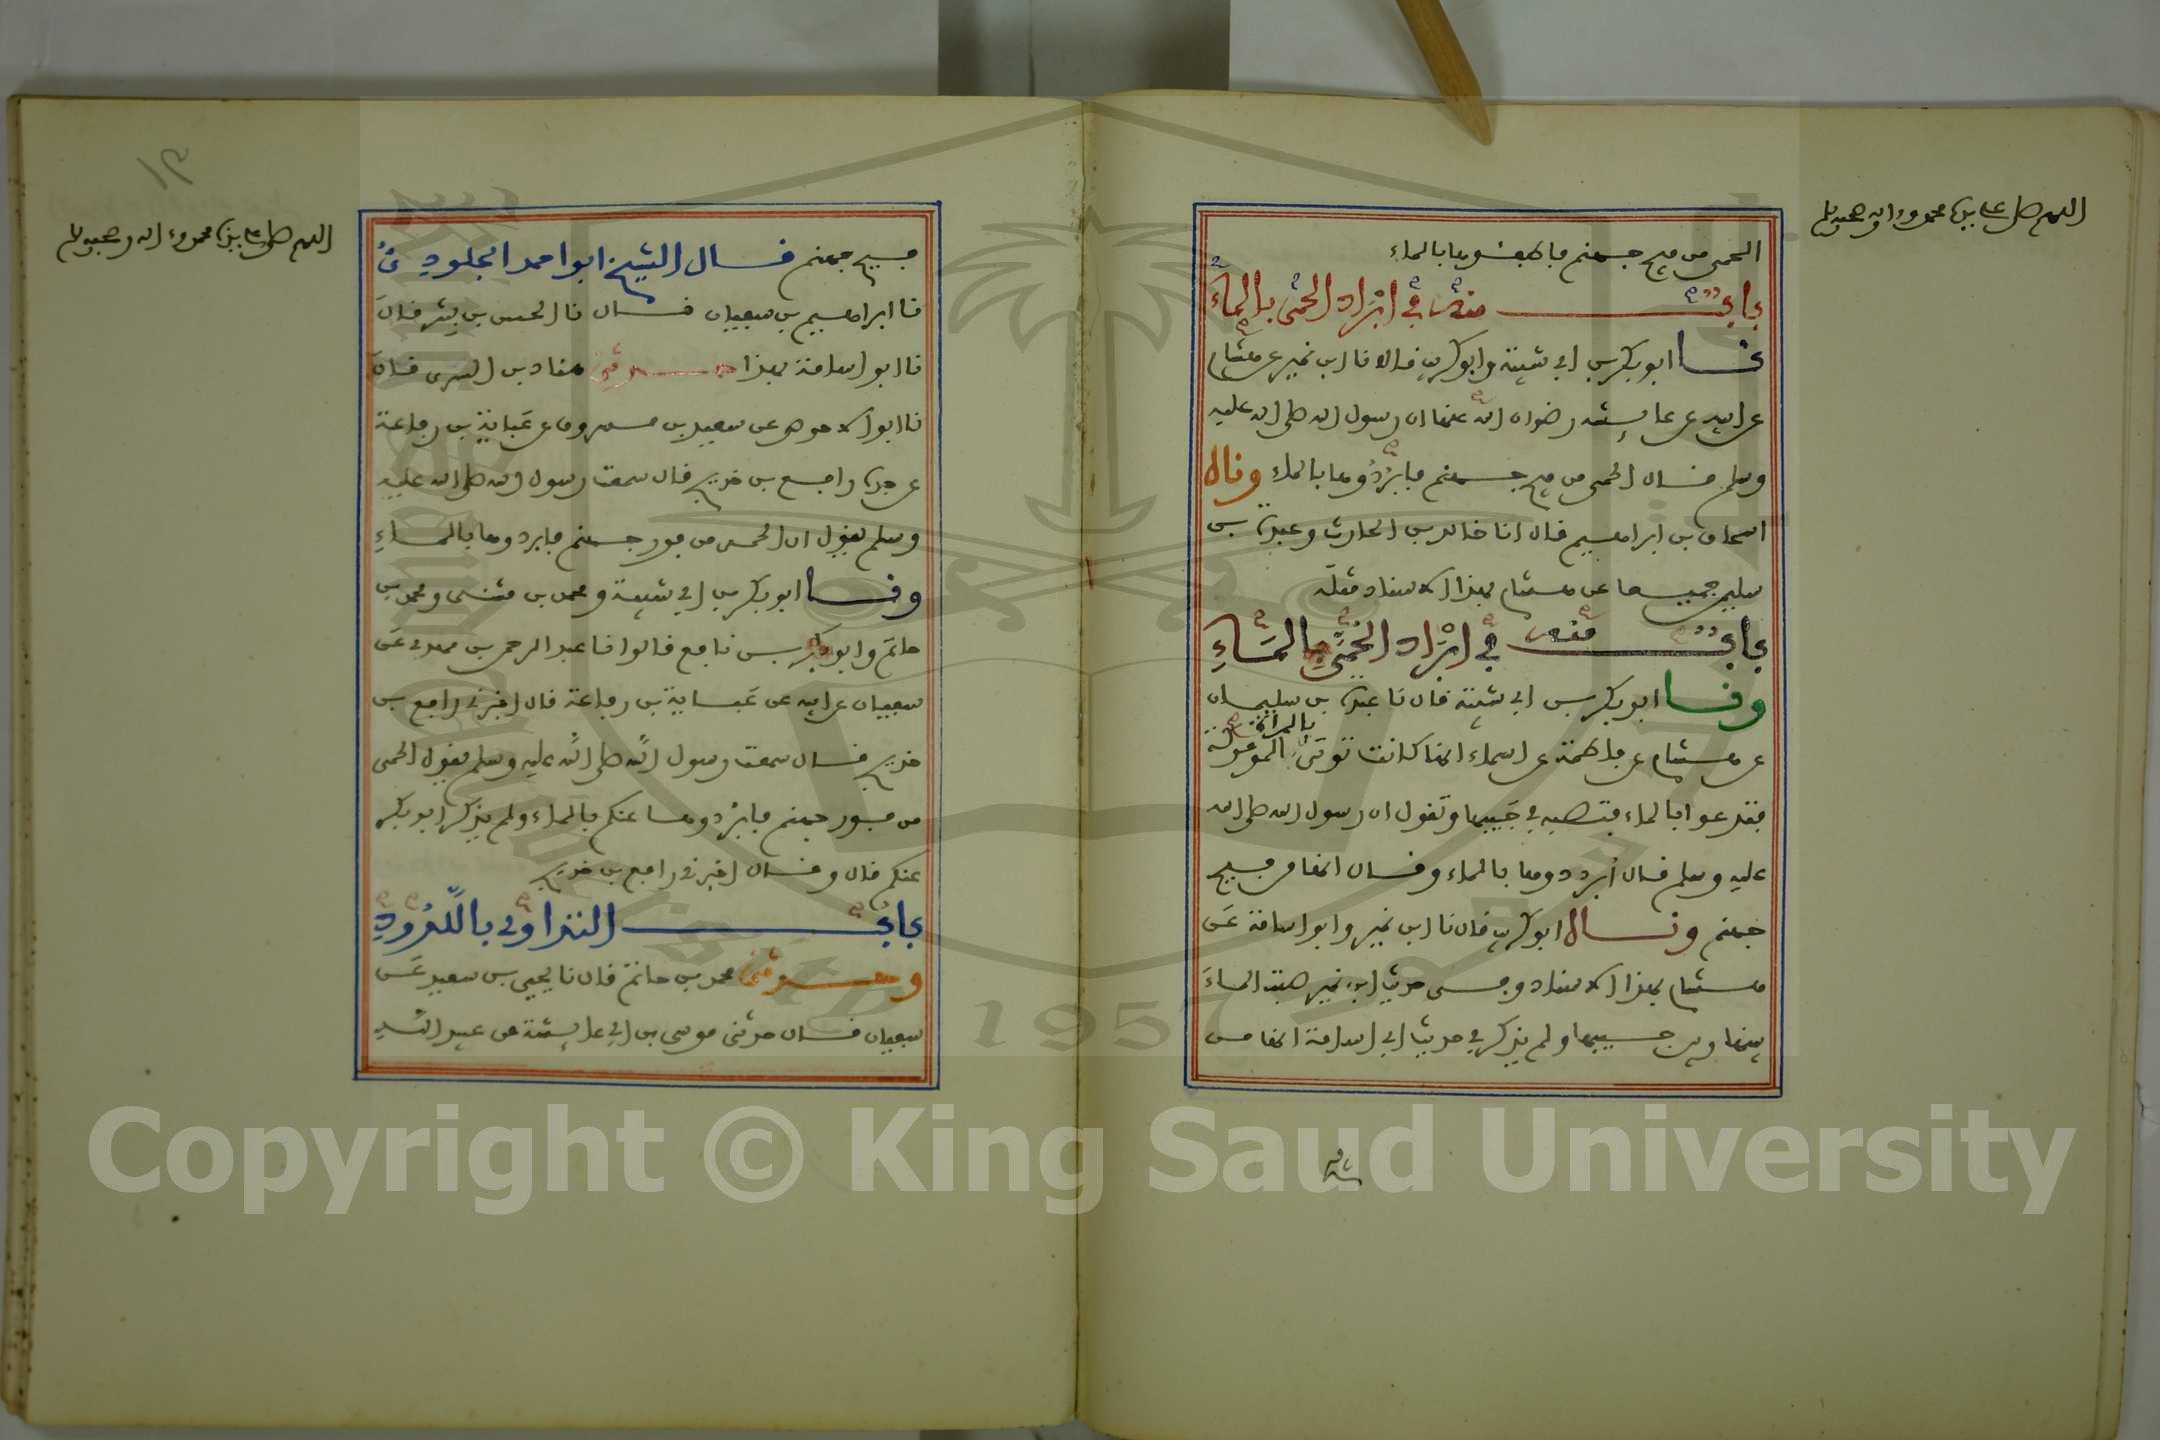 اللهم صل على سيدنا محمد وءاله وصحبه وسلم
الحمى من فيح جهنم فاطفئوها بالماء
باب منه في ابراد الحمى بالماء
نا ابو بكر بن ابي شيبة وابو كريب قالا نا ابن نمير عن هشام
عن ابيه عن عايشة رضوان الله عنها ان رسول الله صلى الله عليه
وسلم قال الحمى من فيح جهنم فابردوها بالماء ونا
اسحاق بن ابراهيم قال انا خالد بن الحارث وعبدة بن
سليم جميعا عن هشام بهذا الاسناد مثله
باب منه في ابراد الحمى بالماء
ونا ابو بكر بن ابي شيبة قال نا عبدة بن سليمان
عن هشام عن فاطمة عن اسماء انها كانت توتى بالمراة الموعوكة
فتدعوا بالماء فتصبه في جيبها وتقول ان رسول الله صلى الله
عليه وسلم قال ابردوها بالماء وقال انها من فيح
جهنم ونا ابو كريب قال نا ابن نمير وابو اسامة عن
هشام بهذا الاسناد وفي حديث ابن نمير صبت الماء
بينها وبين جيبها ولم يذكر في حديث ابي اسامة انها من
اللهم صل على سيدنا محمد وءاله وصحبه وسلم
فيح جهنم قال الشيخ ابوا احمد الجلودي نا
نا ابراهيم بن سفيان قال نا الحسن بن بشر قال
نا ابو اسامة بهذا حدثنا هناد بن السرى قال
نا ابوا الاحوص عن سعيد بن مسروق عن عباية بن رفاعة
عن جده رافع بن خديج قال سمعت رسول الله صلى الله عليه
وسلم يقول ان الحمى من فور جهنم فابردوها بالماء
ونا ابو بكر بن ابي شيبة ومحمد بن مثنى ومحمد بن
حاتم وابو بكر بن نافع قالوا نا عبد الرحمن بن مهدي عن
سفيان عن ابيه عن عباية بن رفاعة قال اخبرني رافع بن
خديج قال سمعت رسول الله صلى الله عليه وسلم يقول الحمى
من فور جهنم فابردوها عنكم بالماء ولم يذكر ابو بكر
عنكم قال وقال اخبرني رافع بن خديج
باب التداوي باللدود
وحدثني محمد بن حاتم قال نا يحيى بن سعيد عن
سفيان قال حدثني موسى بن ابي عايشة عن عبيد الله
Copyright © King Saud University
1957